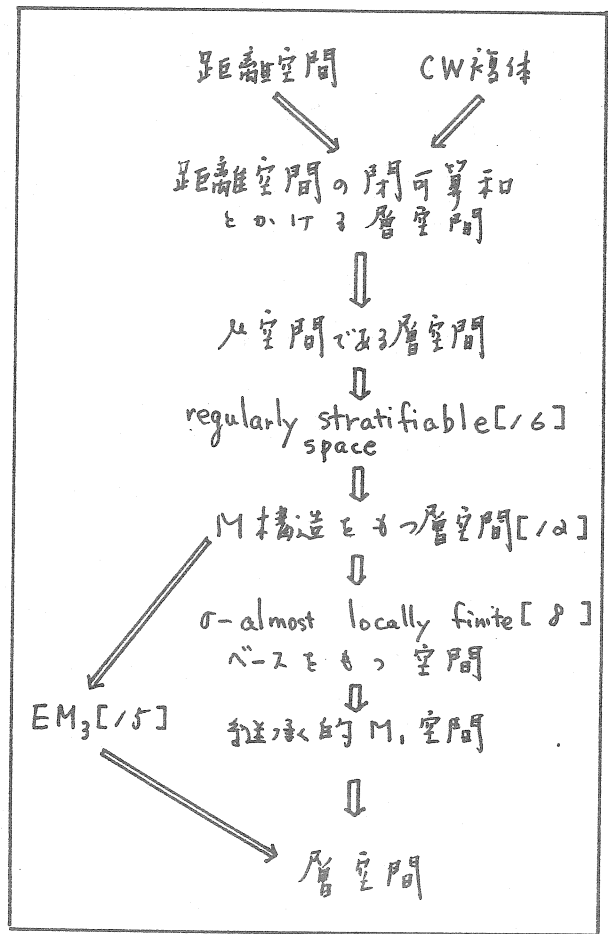 距離空間 CW複体
距離空間の閉可算和
とかける層空間
μ空間である層空間
regularly stratifiable[16]
space
M構造をもつ層空間[12]
σ-almost locally finite[8]
ベースをもつ空間
EM₃[15]
継承的M₁空間
層空間